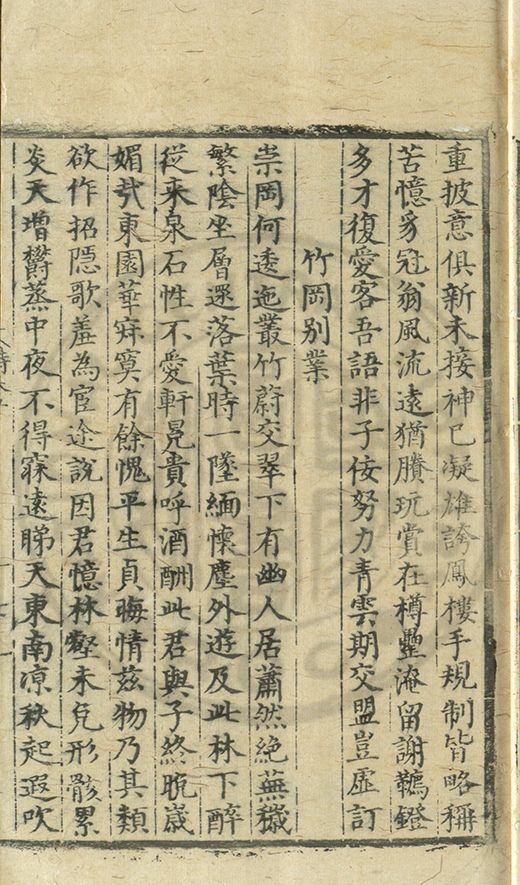 重披意俱新未接神已凝雄誇鳳樓手規制皆略稱
苦憶豸冠翁風流遠猶賸玩賞在樽罍淹留謝韉鐙
多才復愛客吾語非子佞努力青雲期交盟豈虛訂
竹岡別業
崇岡何逶迤叢竹蔚交翠下有幽人居蕭然絶蕪穢
繁陰坐層還落葉時一墜緬懷塵外遊及此林下醉
從来泉石性不愛軒冕貴呼酒酬此君與子終晩歳
媚㦲東園華寂寞有餘愧平生貞晦情兹物乃其類
欲作招隱歌羞為宦途說因君憶林壑未免形骸累
炎天增欝蒸中夜不得寐遠睇天東南凉秋起遐吹